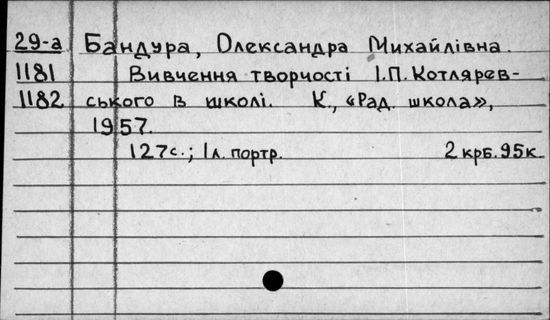 29-а Бандура, Олександра Михайлівна.
1181 Вивчення творчості І.П.Котлярев-
1182 ського в школі. К., «Рад. школа»,
1957.
127с.; 1л. портр. 2 крб. 95к